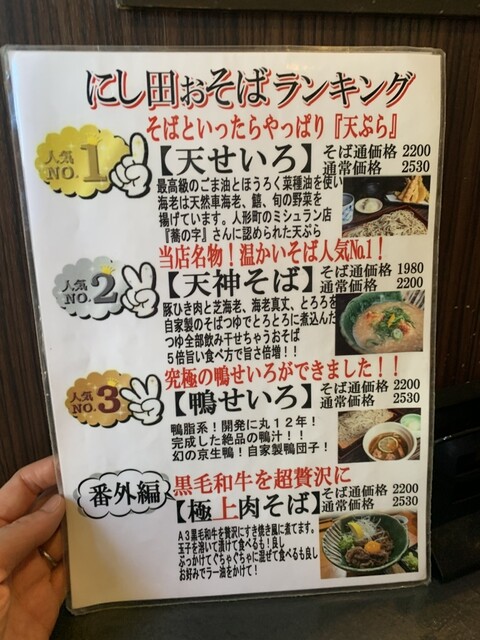 にし田おそばランキング
そばといったらやっぱり『天ぷら』
人気NO.1
【天せいろ】
そば通価格 2200
通常価格 2530
最高級のごま油とほうろく菜種油を使い
海老は天然車海老、鱚、旬の野菜を
揚げています。人形町のミシュラン店
『蕎の字』さんに認められた天ぷら
当店名物!温かいそば人気No.1!
人気NO.2
【天神そば】
そば通価格 1980
通常価格 2200
豚ひき肉と芝海老、海老真丈、とろろを
自家製のそばつゆでとろとろに煮込んだ
つゆ全部飲み干せちゃうおそば
5倍旨い食べ方で旨さ倍増!!
究極の鴨せいろができました!!
人気NO.3
【鴨せいろ】
そば通価格 2200
通常価格 2530
鴨脂系!開発に丸12年!
完成した絶品の鴨汁!!
幻の京生鴨!自家製鴨団子!
番外編
黒毛和牛を超贅沢に
【極上肉そば】
そば通価格 2200
通常価格 2530
A3黒毛和牛を贅沢にすき焼き風に煮てます。
玉子を溶いて漬けて食べるも!良し
ぶっかけてぐちゃぐちゃに混ぜて食べるも良し
お好みでラー油をかけて!